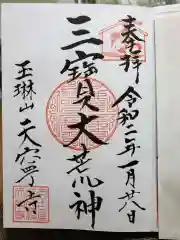 奉拝
令和二年一月廿八日
三寳大荒神
玉琳山 天寧寺